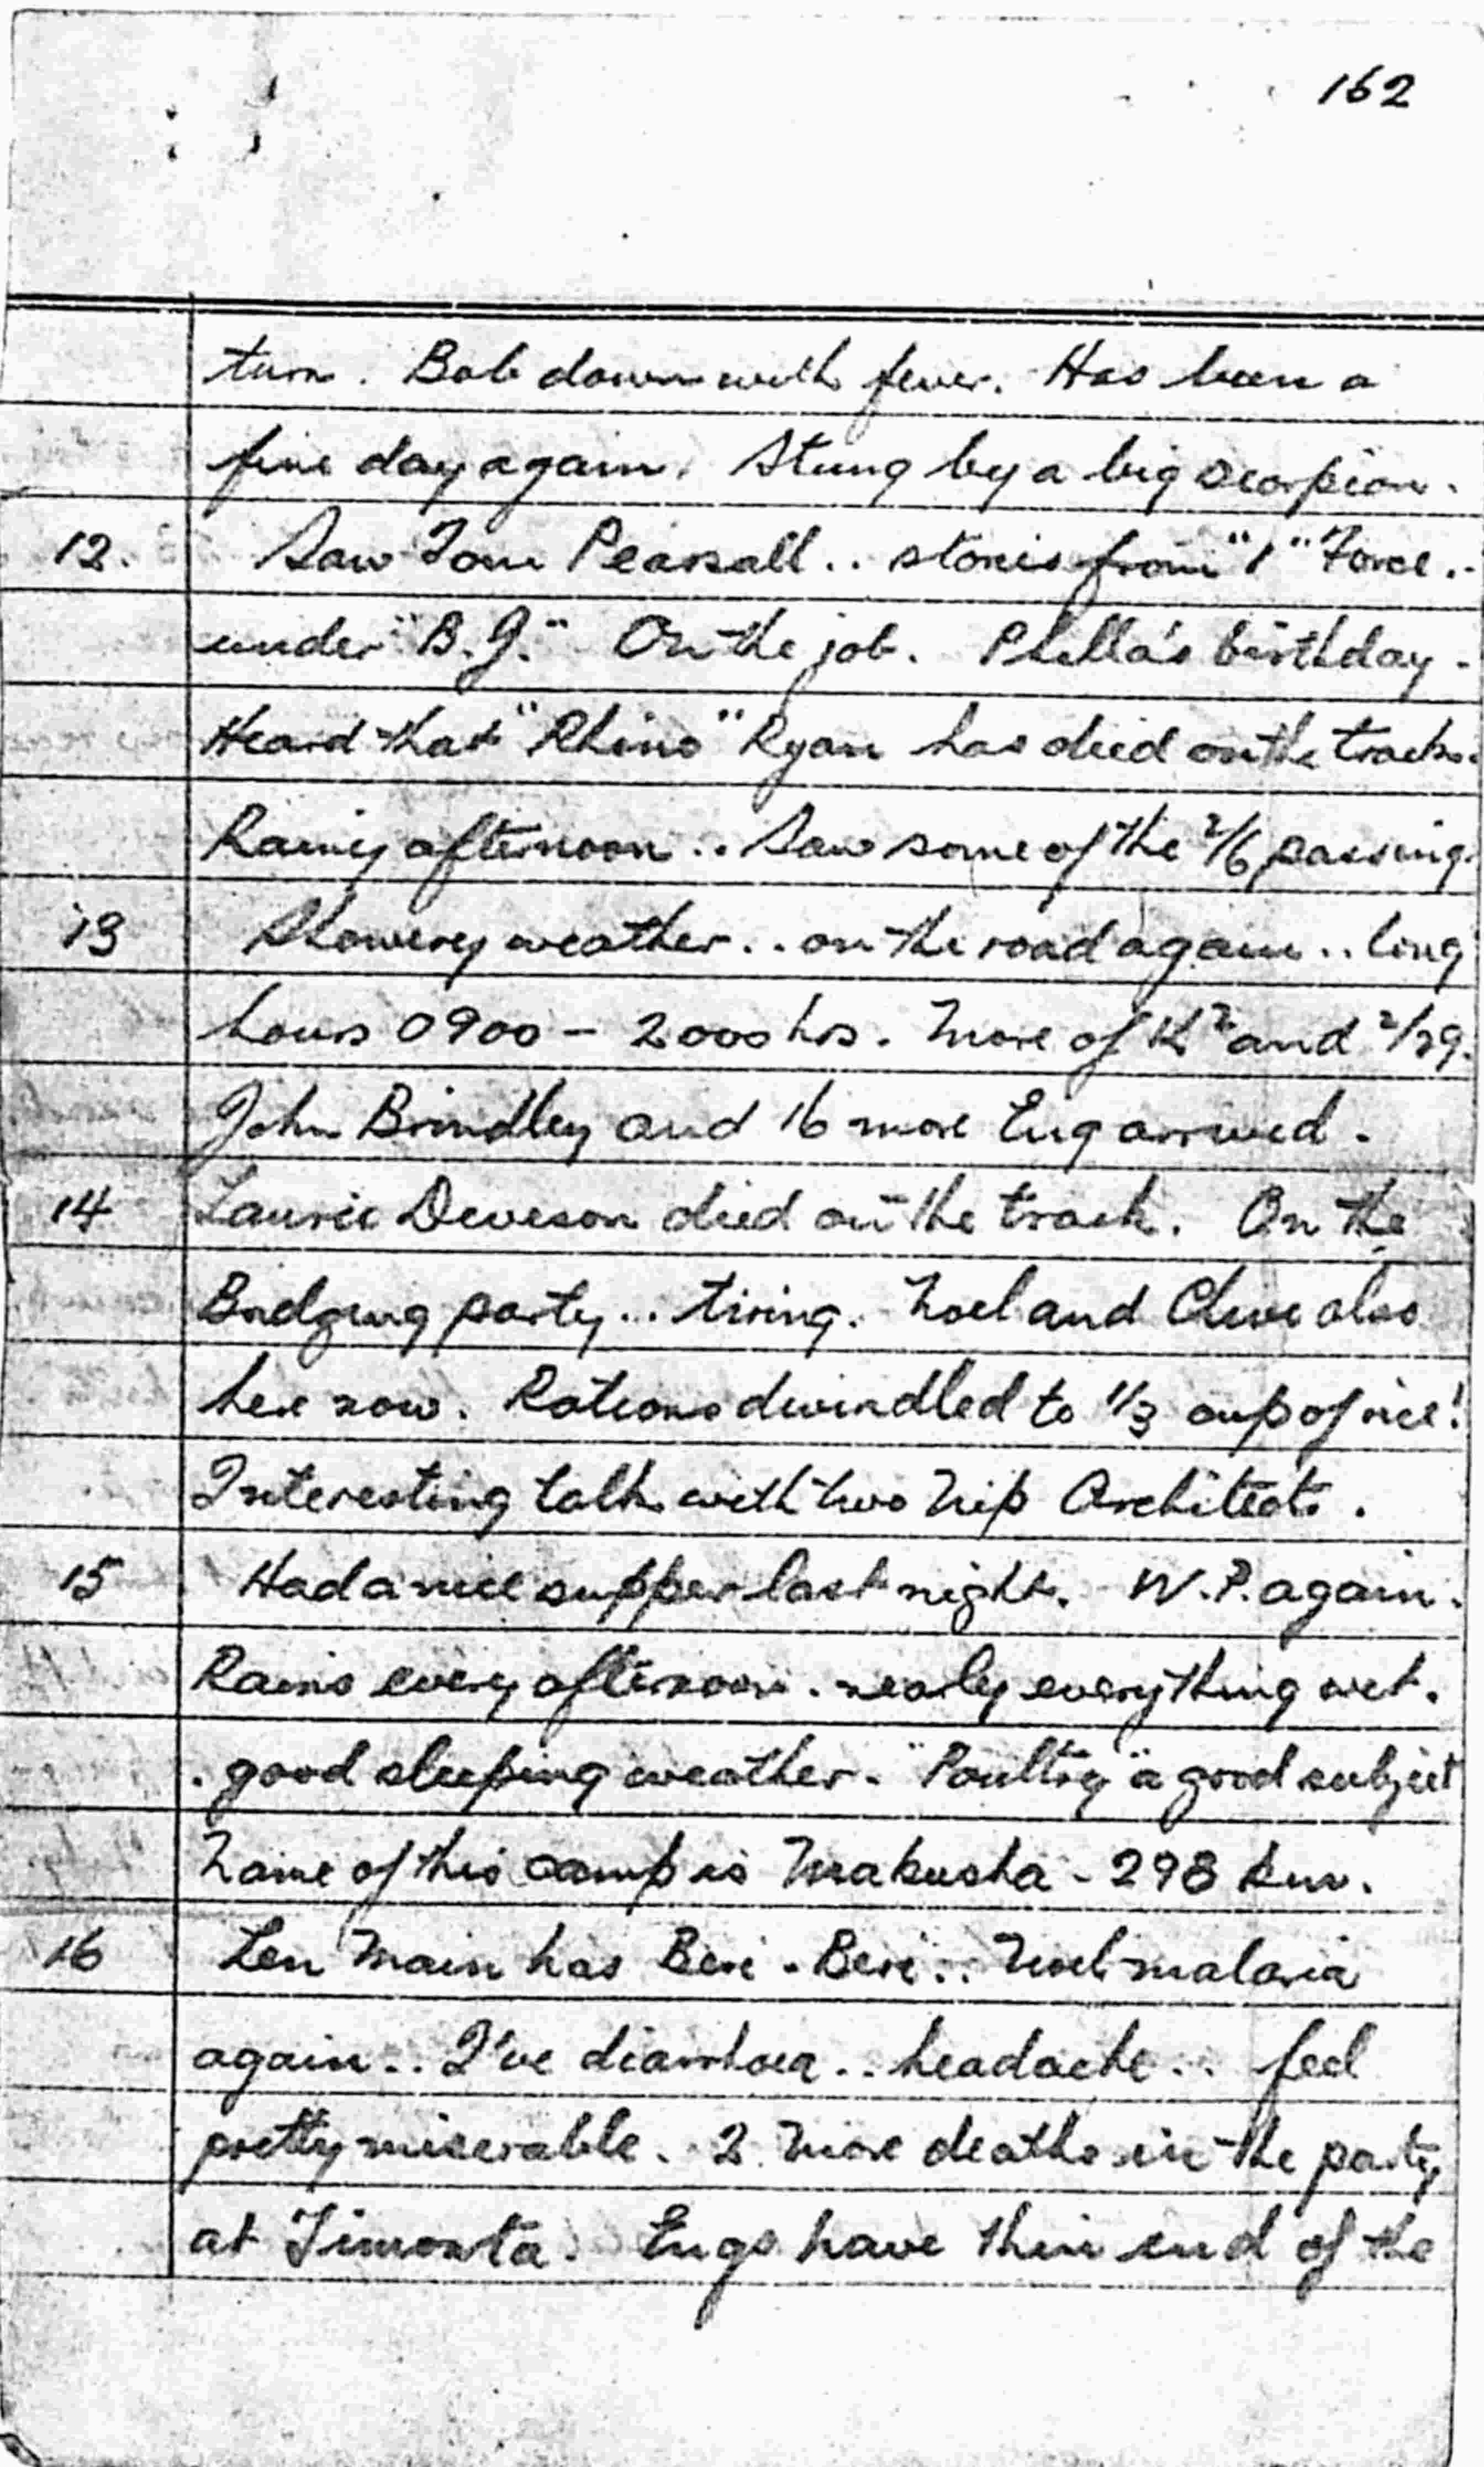 162
turn. Bob down with fever. Has been a
fine day again. Stung by a big scorpion.
12. Saw Tom Pearsall.. stories from "1" Force..
under "B.J." On the job. Phella's birthday.
Heard that "Rhino" Ryan has died on the track.
Rainy afternoon.. Saw some of the 2/6 passing.
13 Showery weather.. on the road again.. long
hours 0900 - 2000 hrs. More of and 2/29.
John Brindley and 16 more Eng arrived.
14 Laurie Deveson died on the track. On the
Bridging party... tiring. Noel and Clive also
here now. Rations dwindled to 1/3 cup of rice!
Interesting talk with two Nip Architects.
15 Had a nice supper last night. W.P. again.
Rains every afternoon. nearly everything wet.
. good sleeping weather. "Poultry" a good subject
Name of this camp is Makusha - 298 km.
16 Len Main has Beri-Beri.. Noel malaria
again.. I've diarrhoea.. headache... feel
pretty miserable. 2 more deaths in the party
at Timonta. Engs have thin end of the